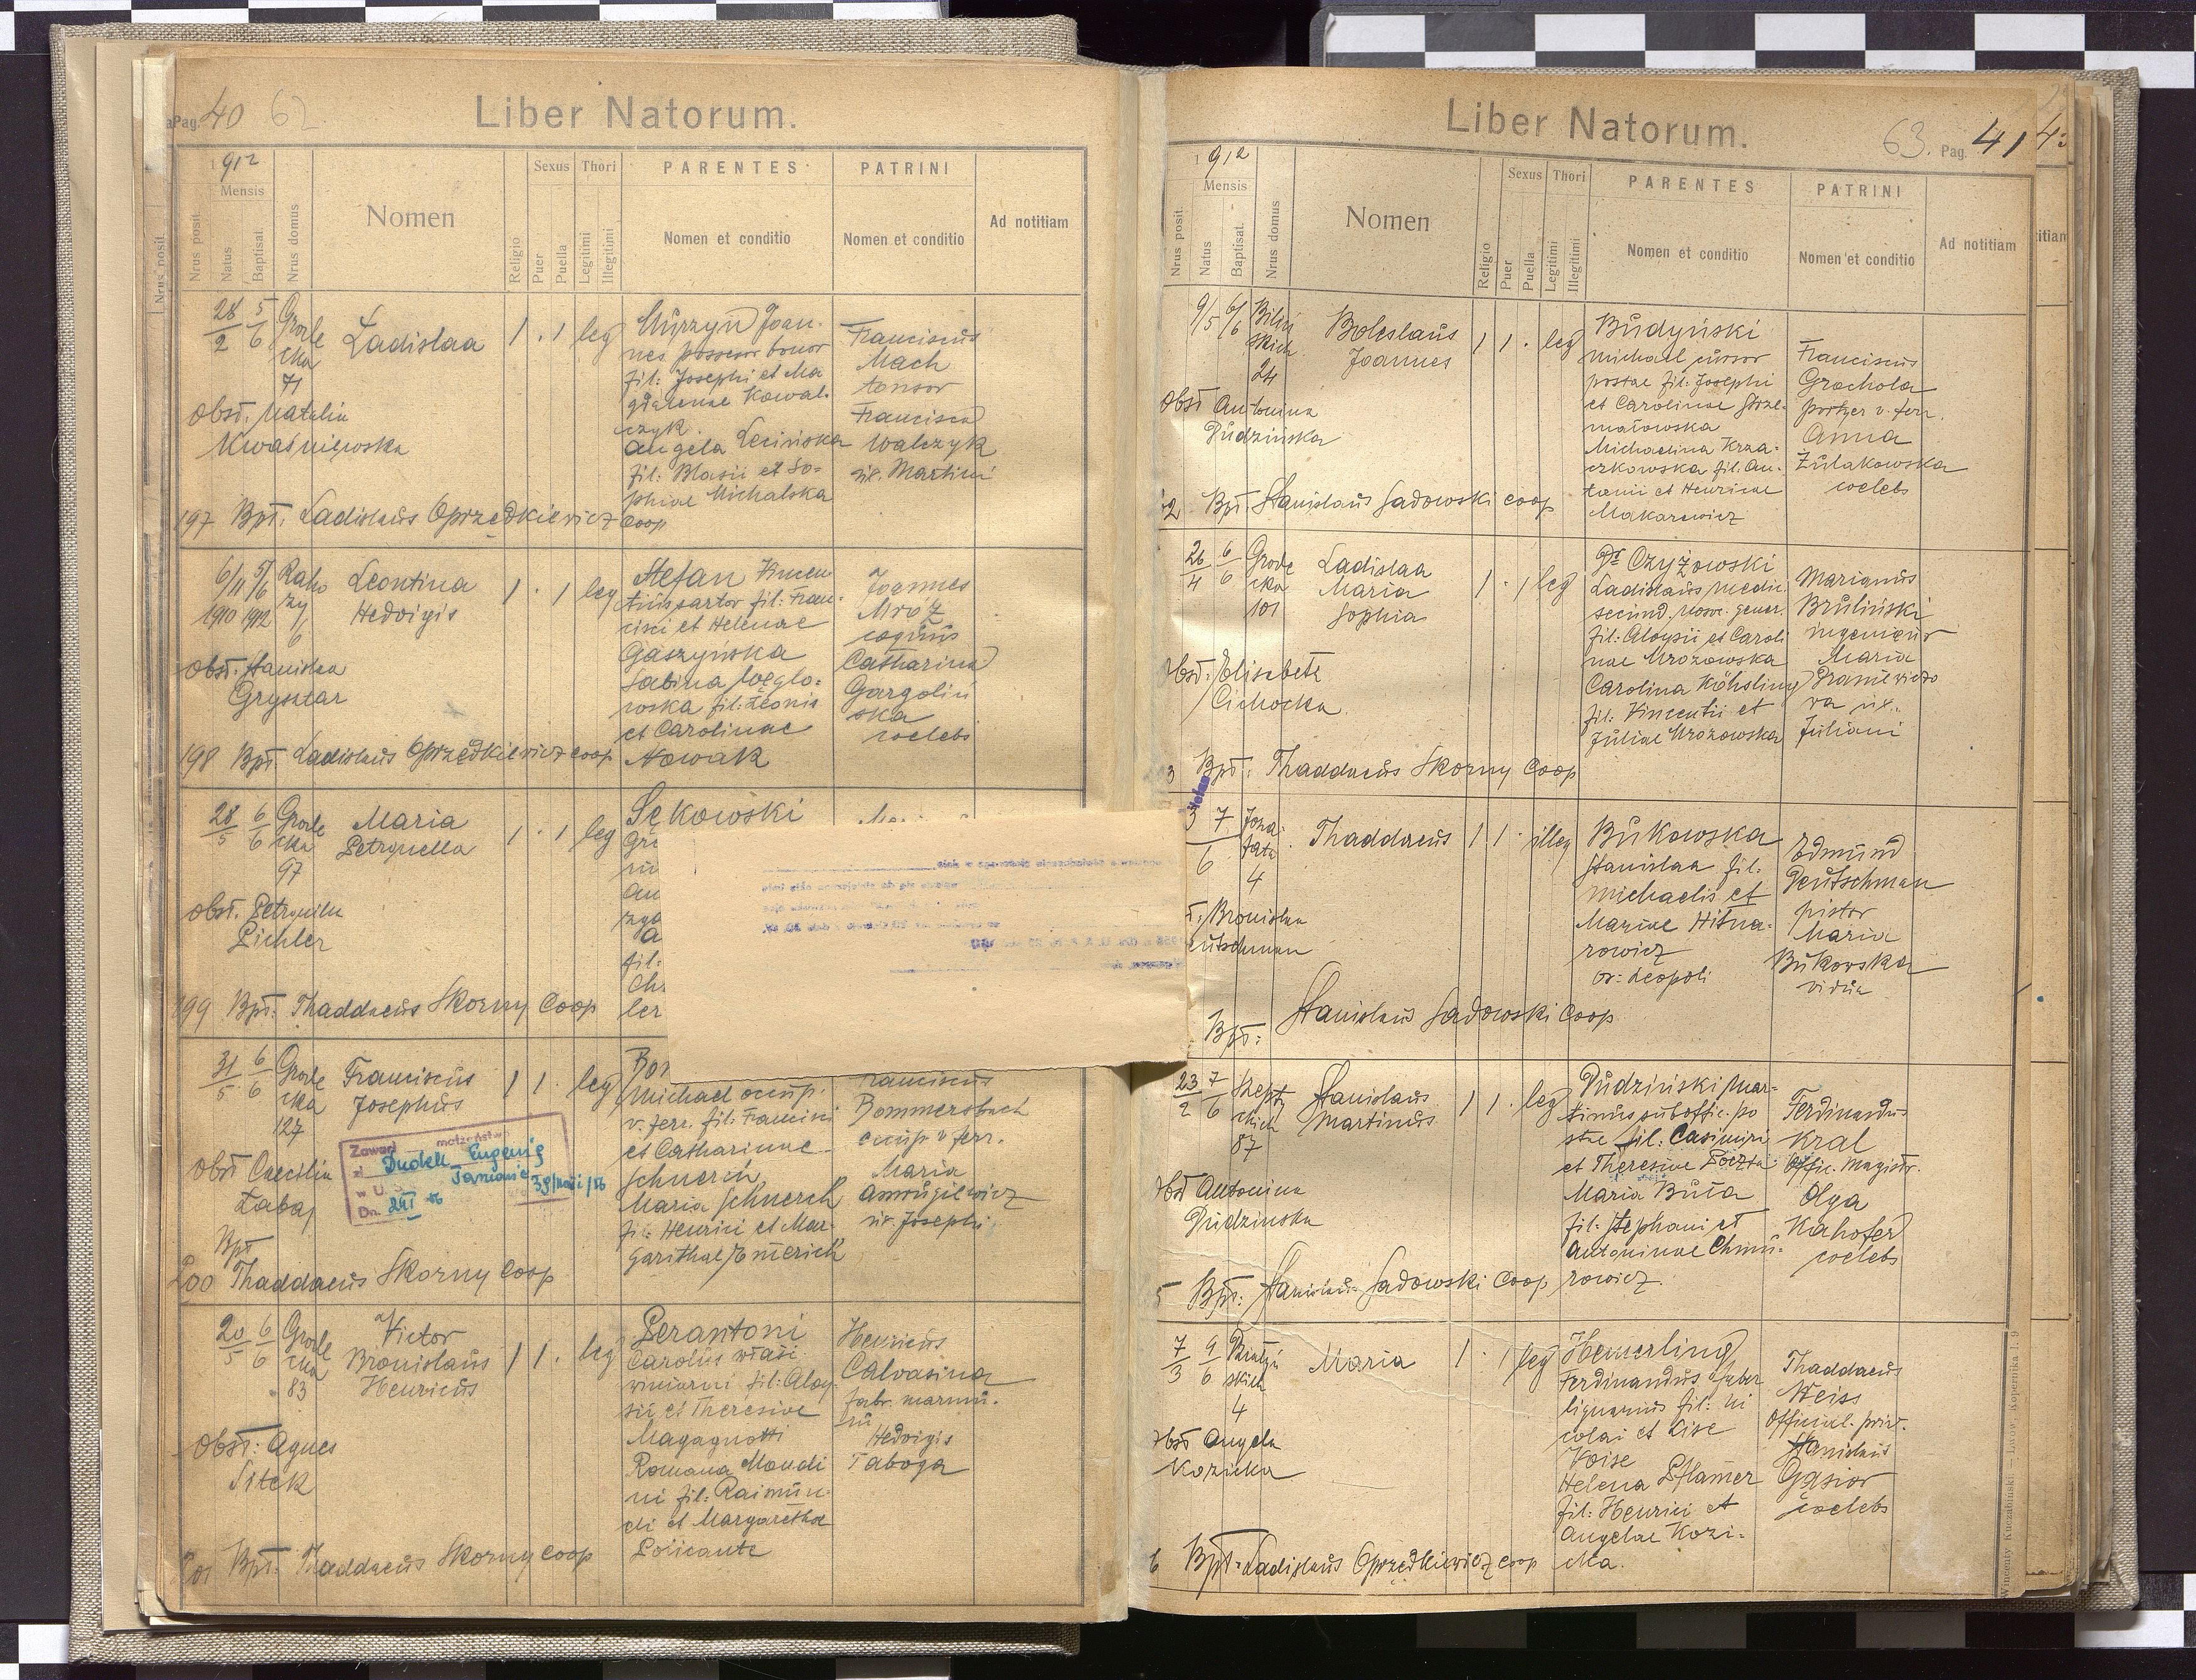 Pag. 40 62
Liber Natorum.
1912
Mensis
Nrus posit.
Natus
Baptisat.
Nrus domus
Nomen
Religio
Sexus
Puer
Puella
Thori
Legitimi
Illegitimi
PARENTES
Nomen et conditio
PATRINI
Nomen et conditio
Ad notitiam
28/2 5/6 Grode
cka
71
Ladislaa
1 . 1 leg
Murzyn Joan-
nes possessor bonor
fil: Josephi et Ma
gdalenae Kowal-
czyk
Angela Lecińska
fil: Blasii et So-
phiae Michalska
Franciscus
Mach
tonsor
Francisca
Walczyk
ux. Martini
Obst. Natalia
Kwaśniewska
197 Bpt. Ladislaus Oprzędkiewicz coop
6/11 5/6
1910 1912
6
Leontina
Hedvigis
1 . 1 leg
Stefan Vincen
tius sartor fil: Fran-
cisci et Helenae
Gaszyńska
Sabina Węglo-
wska fil: Leonis
et Carolinae
Nowak
Joannes
Mroz
coquus
Catharina
Gargoliń
ska
coelebs
Obst. Stanislaa
Grysztar
198 Bpt. Ladislaus Oprzędkiewicz coop
28/5 6/6 Grode
cka
97
Maria
Petronella
1 . 1 leg
Sękowski
fil:
ler
Obst. Petronila
Pichler
199 Bpt. Thaddaeus Skorny Coop
31/5 6/6 Grode
cka
127
Franciscus
Josephus
1 1 . leg
Michael occup.
v. ferr. fil: Francisci
et Catharinae
Schnerch
Maria Schnerch
fil: Henrici et Mar-
garithae Emerich
Franciscus
Bommersbach
occup v ferr.
Maria
ux. Josephi
Obst Caecilia
Zawarł małżeństwo
Dudek Eugenię
w U S
Dn.
Bpt
200 Thaddaeus Skorny Coop
20/5 6/6 Grode
cka
83
Victor
Bronislaus
Henricus
1 1 . leg
Perantoni
Carolus
fil: Aloy-
sii et Theresiae
Magagnotti
Romana Mondi
ni fil: Raimun-
di et Margarethae
Policante
Henricus
Calvasina
fabr. marmu-
ru
Hedvigis
Taboga
Obst: Agnes
Sitek
201 Bpt. Thaddaeus Skorny coop
Liber Natorum.
63. Pag. 41
1912
Mensis
Nrus posit.
Natus
Baptisat.
Nrus domus
Nomen
Religio
Sexus
Puer
Puella
Thori
Legitimi
Illegitimi
PARENTES
Nomen et conditio
PATRINI
Nomen et conditio
Ad notitiam
9/5 6/6 Biliń
skich
24
Boleslaus
Joannes
1 1 . leg
Budyński
Michael cursor
postae fil: Josephi
et Carolinae Strze-
Michaelina Krza-
czkowska fil: An-
tonii et Henricae
Makarewicz
Franciscus
Grochola
portyer v. ferr.
Anna
Żulakowska
coelebs
Obst Antonina
Pudzińska
2 Bpt. Stanislaus Sadowski coop
26/4 6/6 Grode
cka
101
Ladislaa
Maria
Sophia
1 . 1 leg
Dr Czyżowski
Ladislaus medic.
secund. gener.
fil: Aloysii et Caroli
nae Mrozowska
Carolina Köhsling
fil: Vincentii et
Juliae Mrozowska
Marianus
Bruliński
ingenieur
Maria
ux.
Juliani
Obst: Elisabeta
Cichocka
3 Bpt: Thaddaeus Skorny Coop
3/6 7 Joza-
fata
4
Thaddaeus
1 1 . illeg
Bukowska
Stanislaa fil.
Michaelis et
Mariae Hitna-
rowicz
or: Leopoli
Edmund
Deutschman
pistor
Maria
Bukowska
vidua
Bronislaa
Bpt: Stanislaus Sadowski Coop
23/2 7/6 Szepty
ckich
87
Stanislaus
Martinus
1 1 . leg
Pudziński Mar-
tinus suboffic. po
stae fil: Casimiri
et Theresiae
Maria Buta
fil: Stephani et
Antoninae Chmu-
rowicz.
Ferdinandus
Kral
offic. magistr.
Olga
Kahofer
coelebs
Obst Antonina
Pudzińska
5 Bpt: Stanislaus Sadowski Coop
7/3 9/6
skich
4
Maria
1 . 1 leg
Hemerling
Ferdinandus faber
lignarius fil: Ni
colai et Lise
Voise
Helena Pflamer
fil: Henrici et
Angelae Kozi-
cka.
Thaddaeus
Weiss
official. priv.
Stanislaus
Gąsior
coelebs
Obst Angela
Kozicka
6 Bpt: Ladislaus Oprzędkiewicz coop
Wincenty Kuczabiński — Lwów, Kopernika l. 9